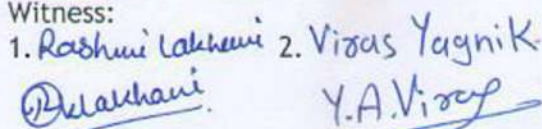 Witness:
1. Rashmi Lakhani 2. Viras Yagnik
RKLakhani Y.A.Viras